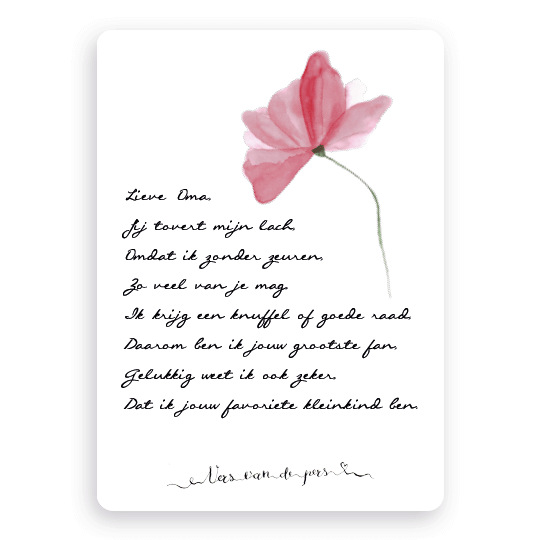 Lieve Oma,
Jij tovert mijn lach,
Omdat ik zonder zeuren,
Zo veel van je mag.
Ik krijg een knuffel of goede raad,
Daarom ben ik jouw grootste fan,
Gelukkig weet ik ook zeker,
Dat ik jouw favoriete kleinkind ben.
Vers van de pers